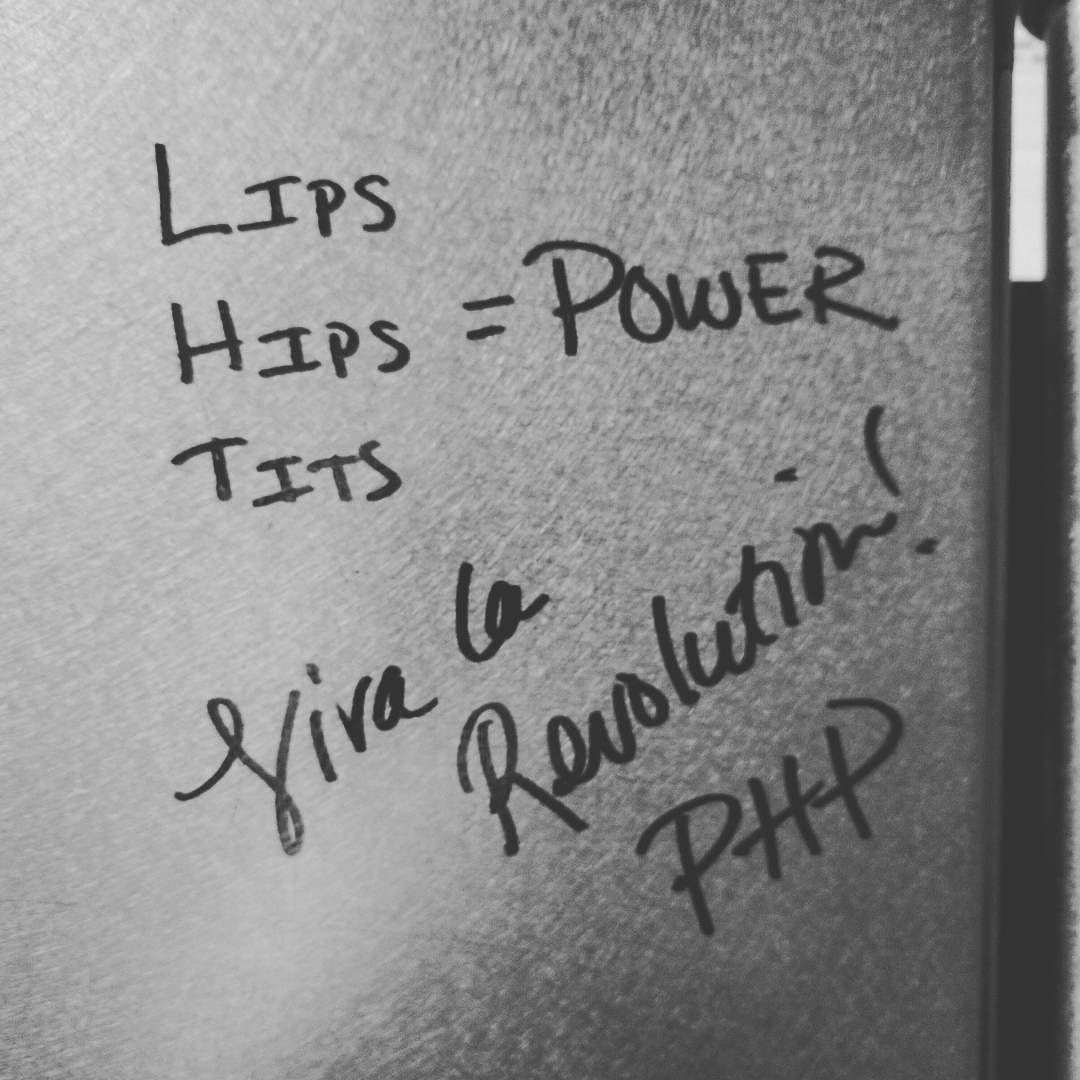 LIPS
HIPS = POWER
TITS
Viva la
Revolution!
PHP